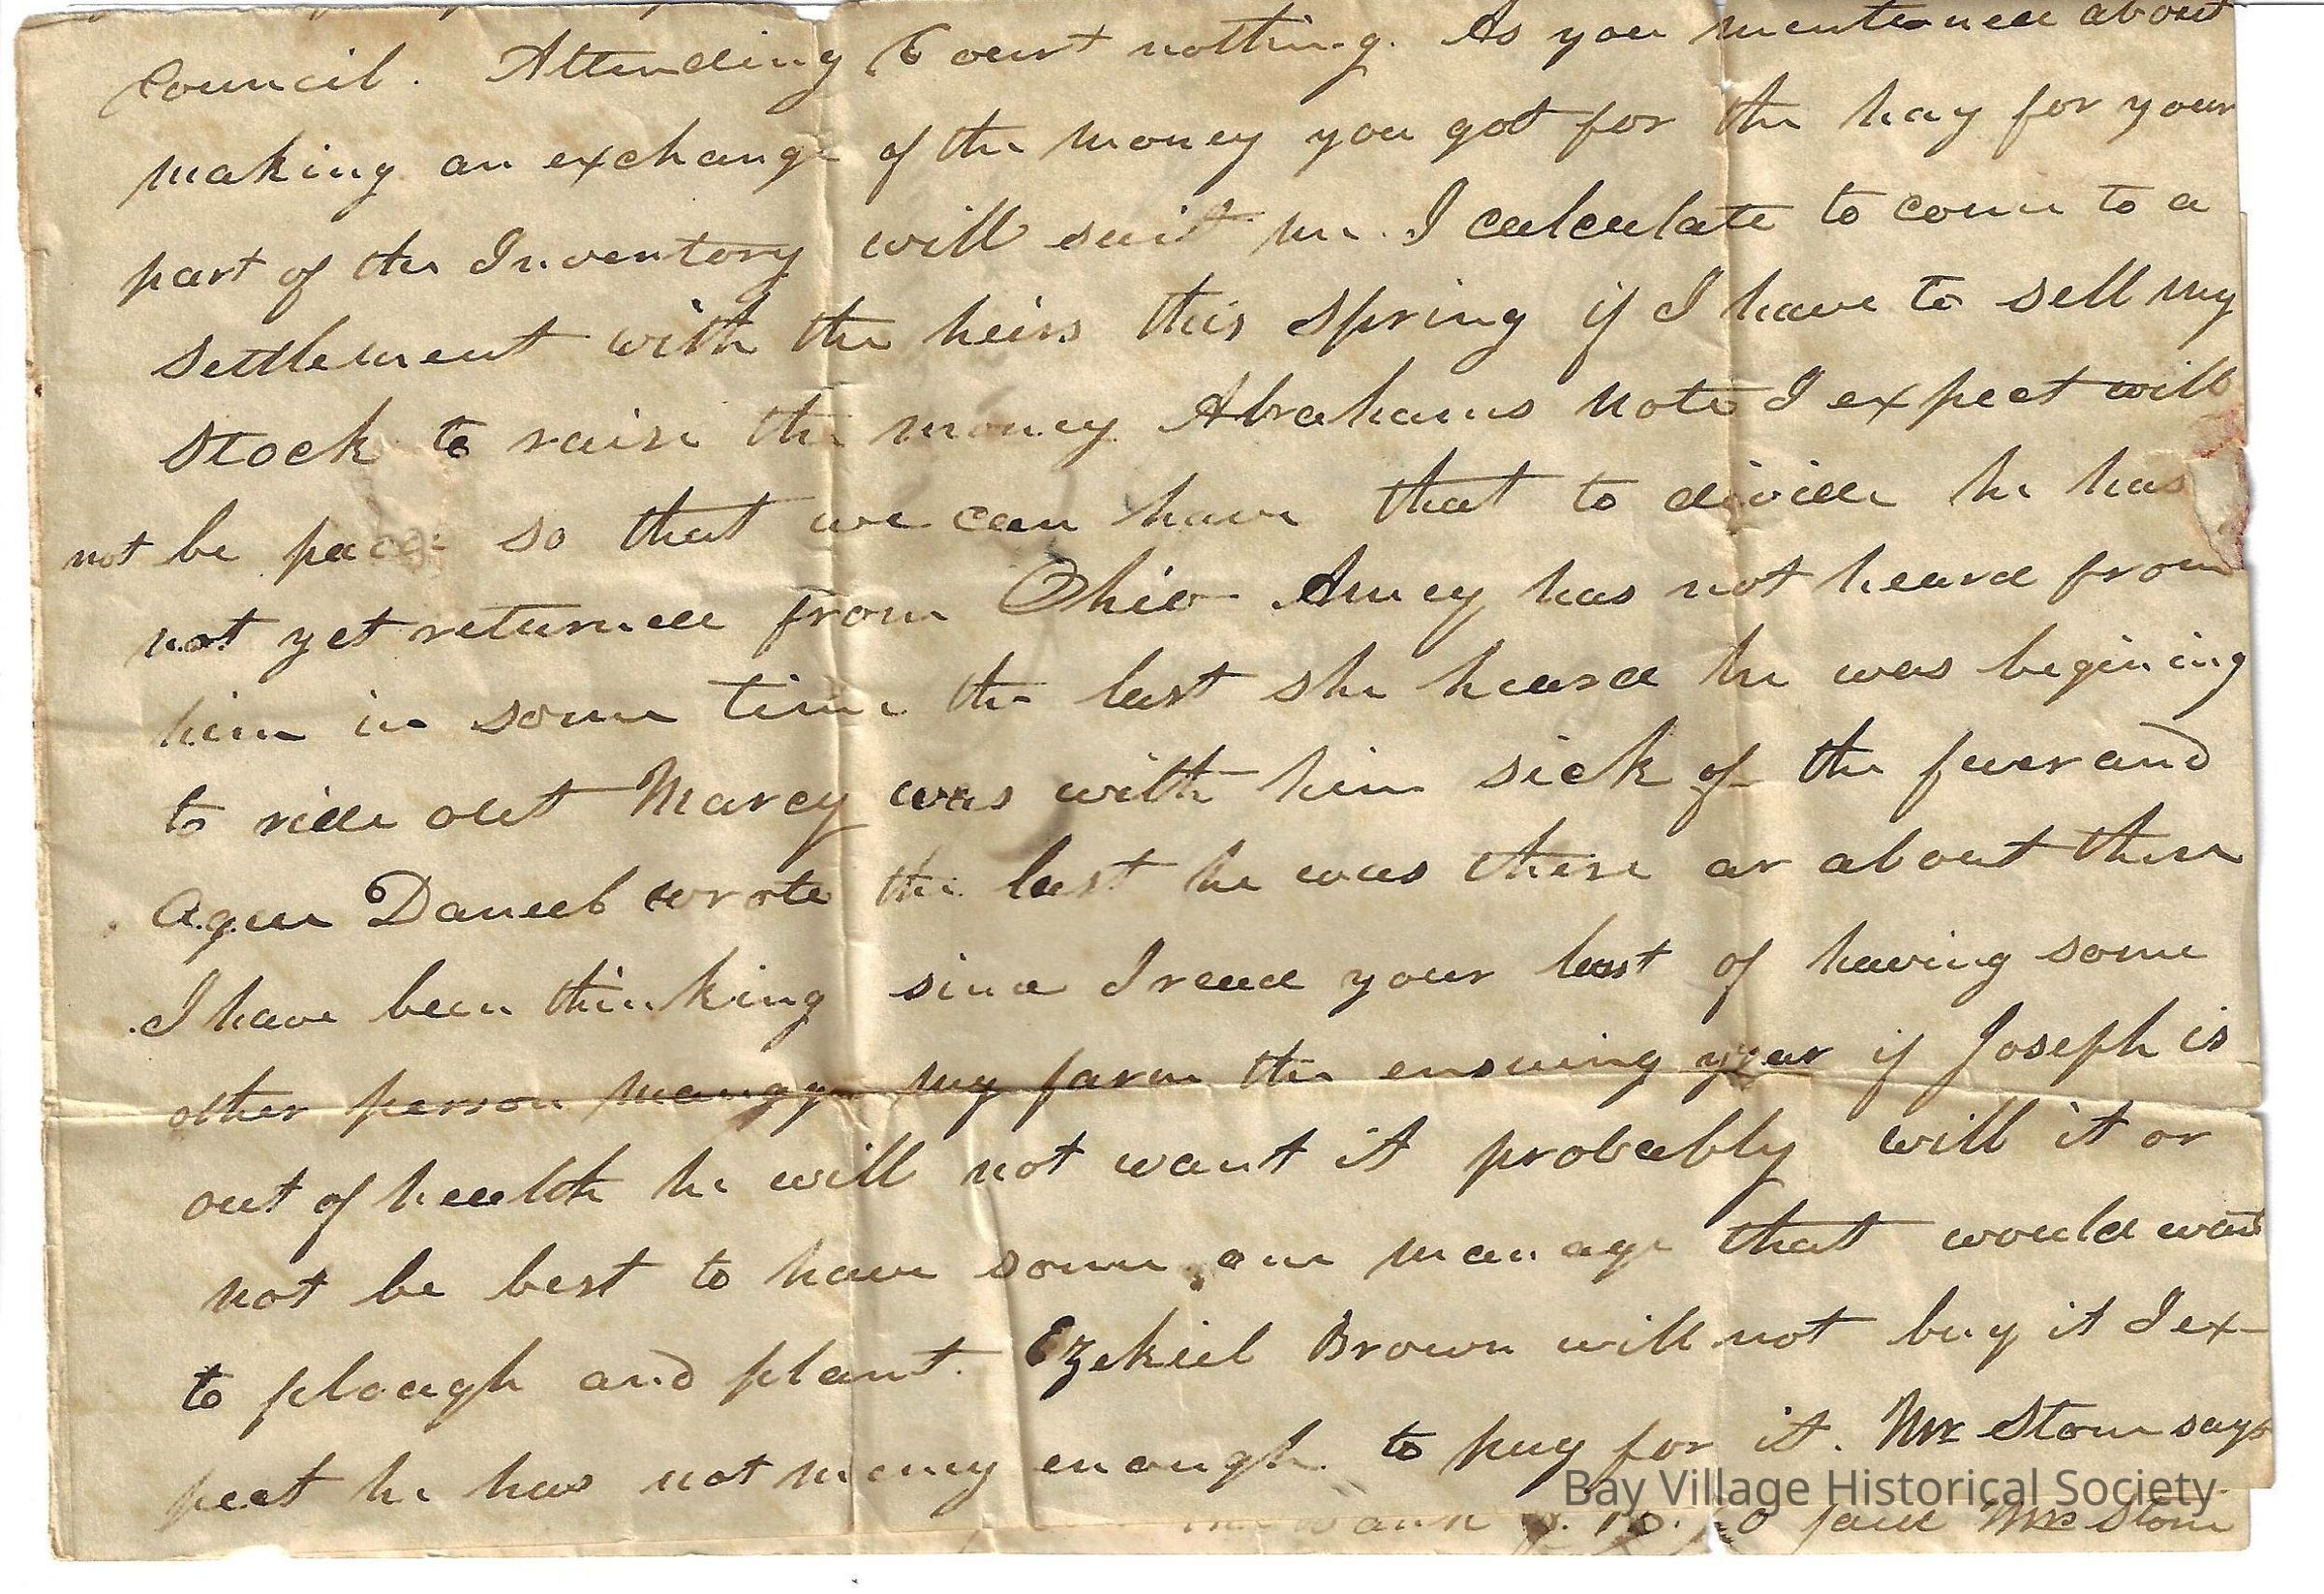 Council. Attending Court nothing. As you mentioned about
making an exchange of the money you got for the hay for your
part of the Inventory will suit me. I calculate to come to a
settlement with the heirs this spring if I have to sell my
stock to raise the money Abrahams note I expect will
not be paid so that we can have that to divide he has
not yet returned from Ohio Amey has not heard from
him in some time the last she heard he was begining
to ride out Marcy was with him sick of the fever and
Ague Daniel wrote the last he was there or about there
I have been thinking since I read your last of having some
other person mangge my farm the ensuing year if Joseph is
out of health he will not want it probably will it or
not be best to have some one manage that would want
to plough and plant. Ezekiel Brown will not buy it I ex-
pect he has not money enough to pay for it. Mr Stone says
Bay Village Historical Society
Mr Stone